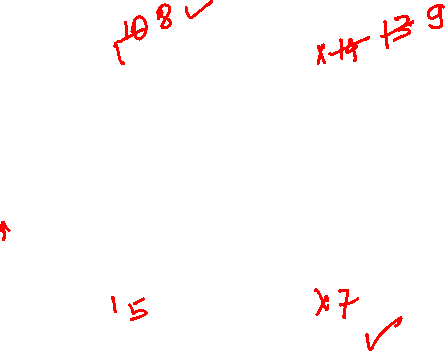 10 8 ✓
x 14 13 9
1 5
x 7 ✓